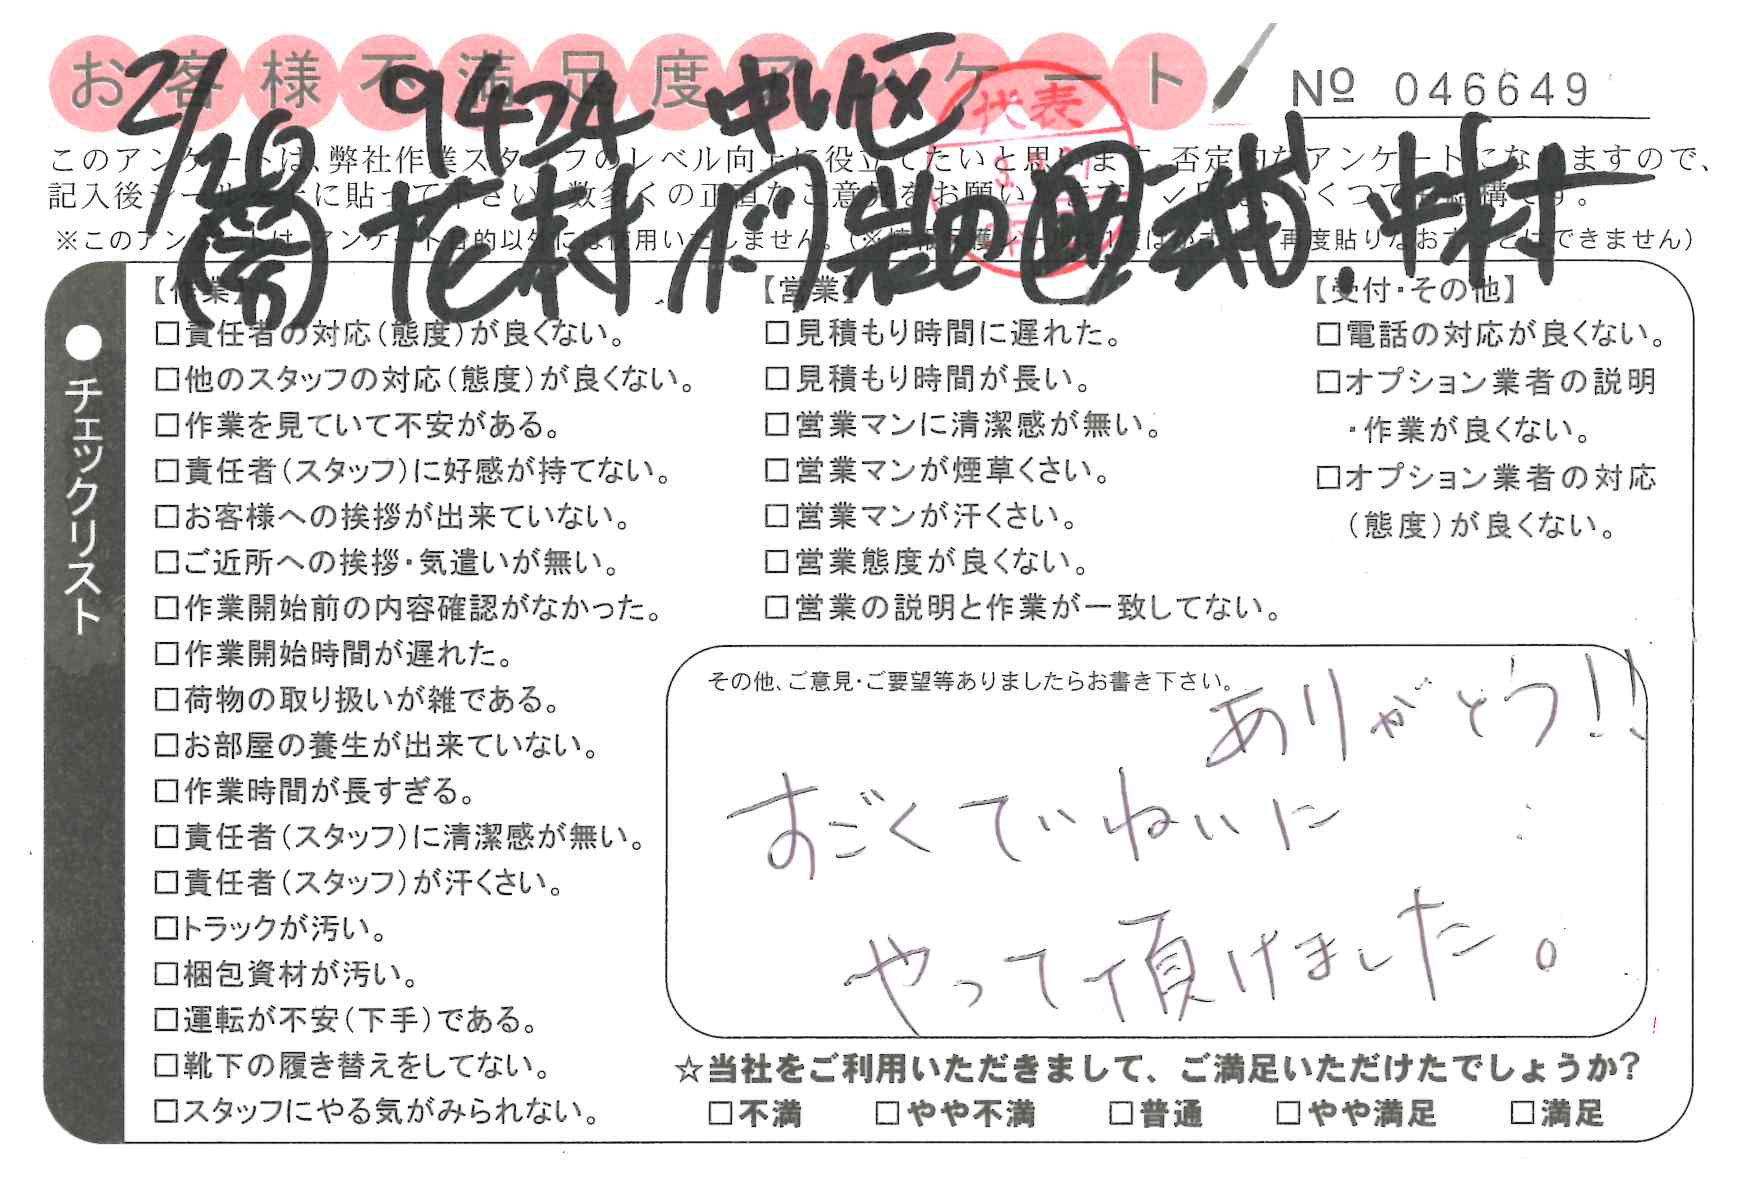 お客様不満足度アンケート
№ 046649
2/26 9474 中川区
代表
このアンケートは、弊社作業スタッフのレベル向上に役立てたいと思います。否定的なアンケートになりますので、
記入後シールを上に貼って下さい。数多くの正直なご意見をお願いします。✓印は、いくつでも結構です。
花村 岩田 三浦. 中村
※このアンケートは、アンケート目的以外には使用いたしません。(※情報保護シールは1度はがすと、再度貼りなおすことはできません)
●チェックリスト
【作業】
□責任者の対応(態度)が良くない。
□他のスタッフの対応(態度)が良くない。
□作業を見ていて不安がある。
□責任者(スタッフ)に好感が持てない。
□お客様への挨拶が出来ていない。
□ご近所への挨拶・気遣いが無い。
□作業開始前の内容確認がなかった。
□作業開始時間が遅れた。
□荷物の取り扱いが雑である。
□お部屋の養生が出来ていない。
□作業時間が長すぎる。
□責任者(スタッフ)に清潔感が無い。
□責任者(スタッフ)が汗くさい。
□トラックが汚い。
□梱包資材が汚い。
□運転が不安(下手)である。
□靴下の履き替えをしてない。
□スタッフにやる気がみられない。
【営業】
□見積もり時間に遅れた。
□見積もり時間が長い。
□営業マンに清潔感が無い。
□営業マンが煙草くさい。
□営業マンが汗くさい。
□営業態度が良くない。
□営業の説明と作業が一致してない。
【受付・その他】
□電話の対応が良くない。
□オプション業者の説明
・作業が良くない。
□オプション業者の対応
(態度)が良くない。
その他、ご意見・ご要望等ありましたらお書き下さい。
ありがとう!!
すごくていねいに
やって頂けました。
☆当社をご利用いただきまして、ご満足いただけたでしょうか?
□不満 □やや不満 □普通 □やや満足 □満足